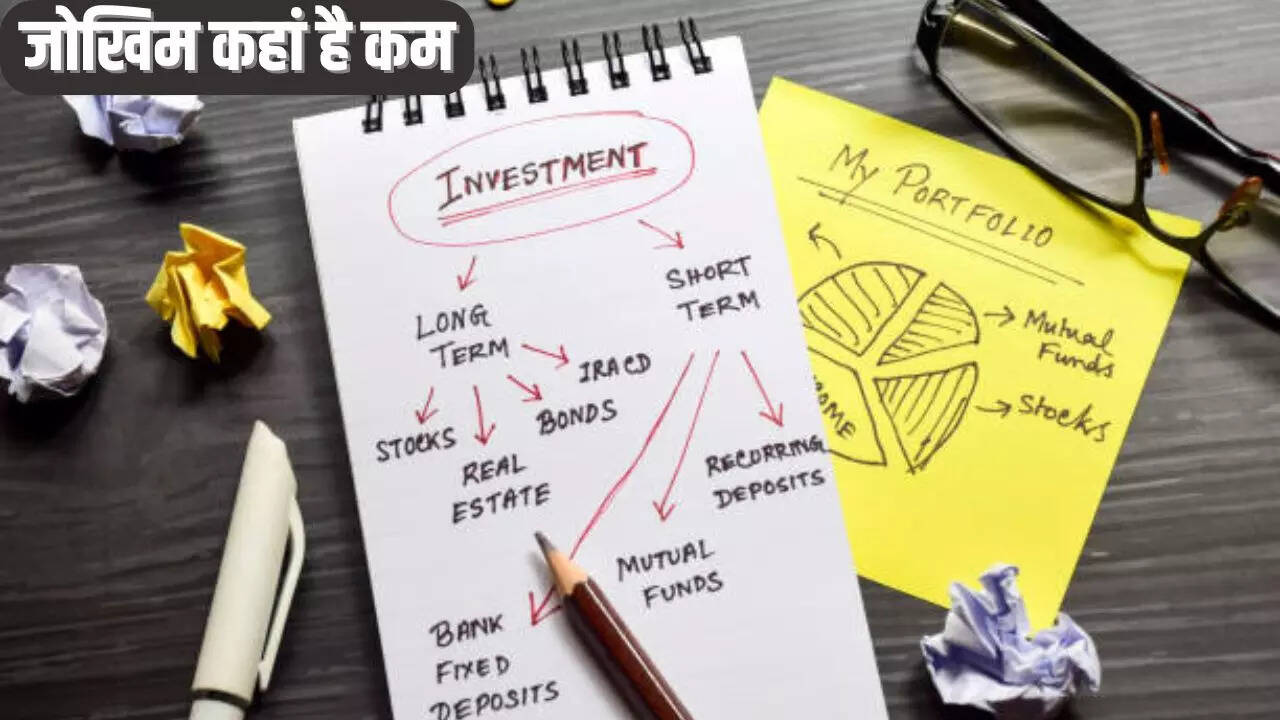 जोखिम कहां है कम
INVESTMENT
LONG
TERM
SHORT
TERM
STOCKS
REAL
ESTATE
BONDS
IRA CD
BANK
FIXED
DEPOSITS
MUTUAL
FUNDS
RECURRING
DEPOSITS
My PORTFOLIO
Mutual
Funds
Stocks